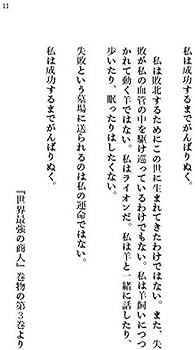 11
私は成功するまでがんばりぬく。
私は敗北するためにこの世に生まれてきたわけではない。また、失
敗が私の血管の中を駆け巡っているわけでもない。私は羊飼いにつつ
かれて動く羊ではない。私はライオンだ。私は羊と一緒に話したり、
歩いたり、眠ったりはしたくない。
失敗という墓場に送られるのは私の運命ではない。
私は成功するまでがんばりぬく。
『世界最強の商人』巻物の第3巻より